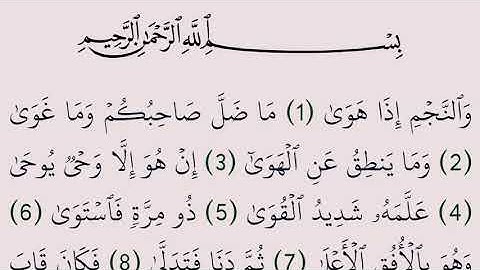 بِسْمِ اللَّهِ الرَّحْمَٰنِ الرَّحِيمِ
وَٱلنَّجْمِ إِذَا هَوَىٰ (1) مَا ضَلَّ صَاحِبُكُمْ وَمَا غَوَىٰ
(2) وَمَا يَنطِقُ عَنِ ٱلْهَوَىٰٓ (3) إِنْ هُوَ إِلَّا وَحْىٌ يُوحَىٰ
(4) عَلَّمَهُۥ شَدِيدُ ٱلْقُوَىٰ (5) ذُو مِرَّةٍ فَٱسْتَوَىٰ (6)
وَهُوَ بِٱلْأُفُقِ ٱلْأَعْلَىٰ (7) ثُمَّ دَنَا فَتَدَلَّىٰ (8) فَكَانَ قَابَ